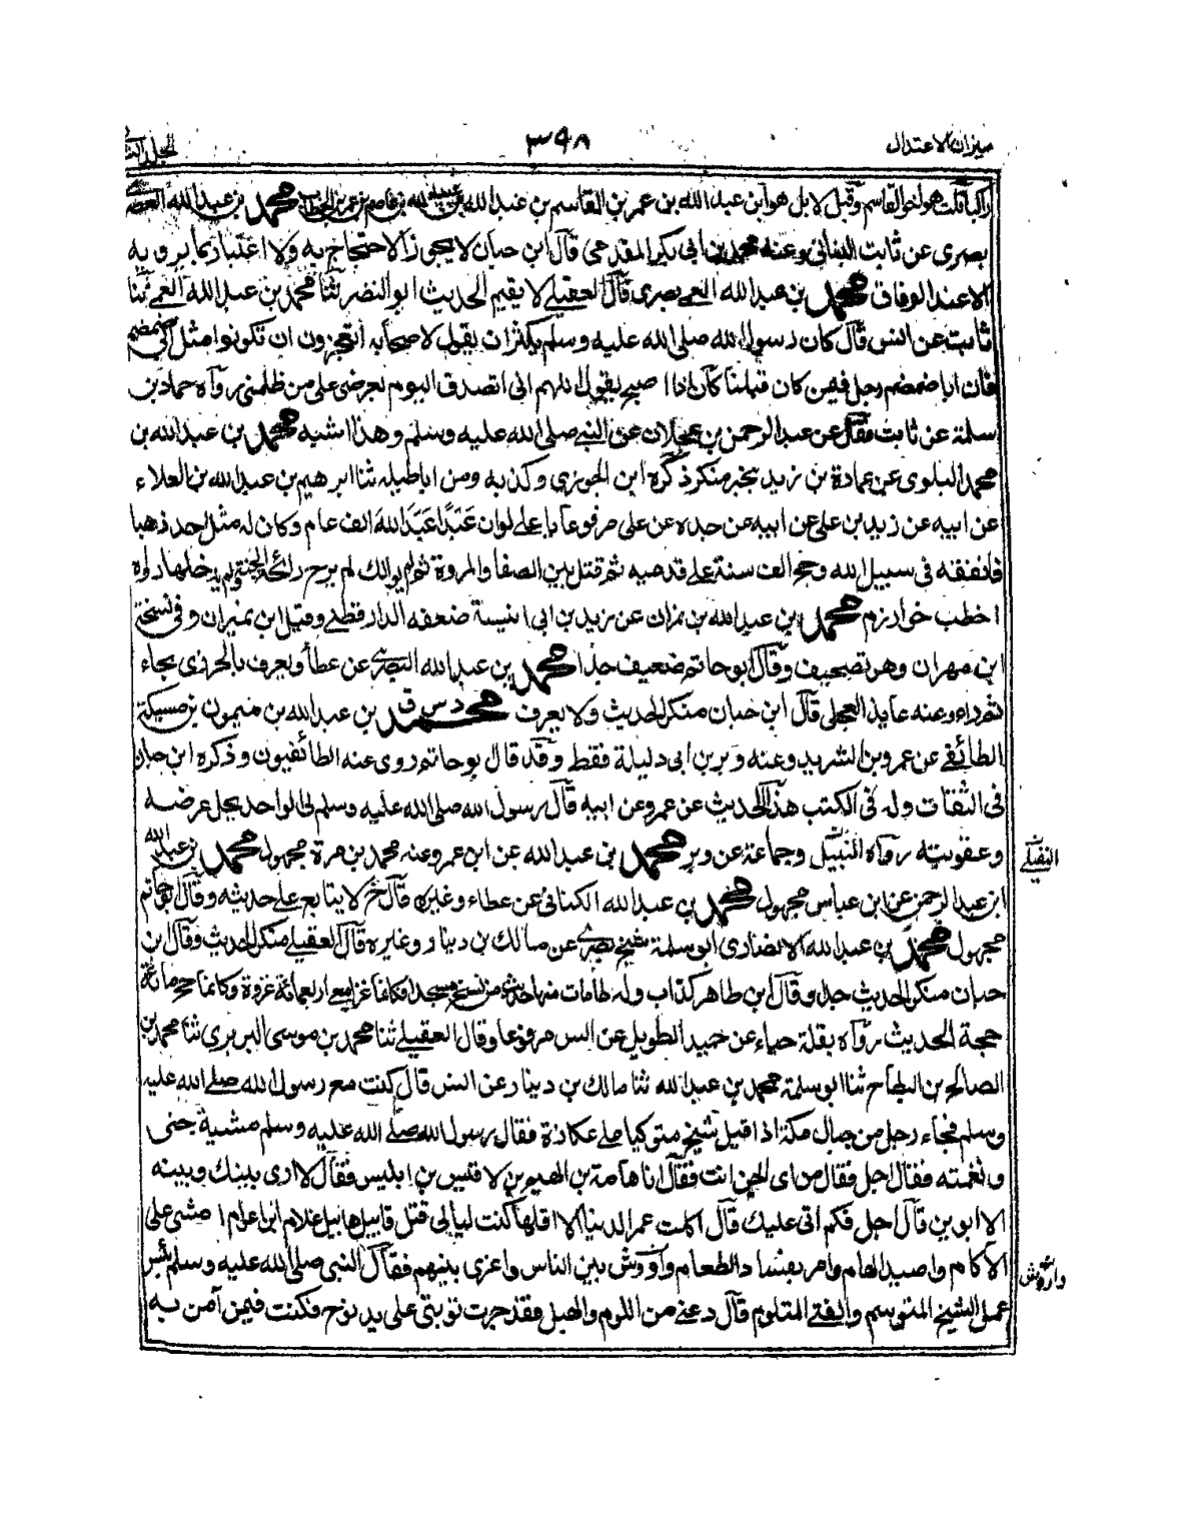 ميزان الاعتدال
٣٩٨
راكبا قلت هو اخو القاسم وقيل لا بل هو ابن عبد الله بن عمر بن القاسم بن عبد الله بن عبيد الله بن عاصم بن عمر بن الخطاب محمد بن عبد الله العصري
بصري عن ثابت البناني وعنه محمد بن ابي بكر المقدمي قال ابن حبان لا يجوز الاحتجاج به ولا اعتبار بما يرويه
الا عند الوفاق محمد بن عبد الله العمي بصري قال العقيلي لا يقيم الحديث ابو النضر ثنا محمد بن عبد الله العمي ثنا
ثابت عن انس قال كان رسول الله صلى الله عليه وسلم يكثر ان يقول لاصحابه اتعجزون ان تكونوا مثل ابي ضمضم
فان ابا ضمضم رجل فيمن كان قبلنا كان اذا اصبح يقول اللهم انى اتصدق اليوم بعرضى على من ظلمنى رواه حماد بن
سلمة عن ثابت فقال عن عبد الرحمن بن عجلان عن النبي صلى الله عليه وسلم وهذا اشبه محمد بن عبد الله بن
محمد البلوى عن عمارة بن زيد بخبر منكر ذكره ابن الجوزي وكذبه ومن اباطيله ثنا ابرهيم بن عبد الله بن العلاء
عن ابيه عن زيد بن على عن ابيه عن جده عن على مرفوعا يا على لو ان عبدا عبد الله الف عام وكان له مثل احد ذهبا
فانفقه فى سبيل الله وحج الف سنة على قدميه ثم قتل بين الصفا والمروة ثم لم يوالك لم يرح رائحة الجنة ولم يدخلها رواه
اخطب خوارزم محمد بن عبد الله بن نمران عن زيد بن ابى انيسة ضعفه الدارقطني وقيل ابن نميران وفى نسخة
ابن مهران وهو تصحيف وقال ابو حاتم ضعيف جدا محمد بن عبد الله البصري عن عطا ويعرف بالحرزى بجاء
ثم راء وعنه عايذ العجلى قال ابن حبان منكر الحديث ولا يعرف محمد د س ق بن عبد الله بن ميمون بن مسيكة
الطائفي عن عمرو بن الشريد وعنه وبر بن ابى دليلة فقط وقد قال بو حاتم روى عنه الطائفيون وذكره ابن حبان
فى الثقات وله فى الكتب هذا الحديث عن عمرو عن ابيه قال رسول الله صلى الله عليه وسلم لي الواحد يحل عرضه
وعقوبته رواه النبيل وجماعة عن وبر محمد بن عبد الله عن ابن عمر وعنه محمد بن مرة مجهول محمد بن عبد الله
ابن عبد الرحمن عن ابن عباس مجهول محمد بن عبد الله الكنانى عن عطاء وغيره قال خ لا يتابع على حديثه وقال ابو حاتم
مجهول محمد بن عبد الله الانصارى ابو سلمة شيخ بصري عن مالك بن دينار وغيره قال العقيلي منكر الحديث وقال ابن
حبان منكر الحديث جدا وقال ابن طاهر كذاب وله طامات منها حديث من سرج مسجدا فكانما غزا معى اربعمائة غزوة وكانما حج مائة
حجة الحديث رواه بقلة حياء عن حميد الطويل عن انس مرفوعا وقال العقيلي ثنا محمد بن موسى البربرى ثنا محمد بن
الصالح بن البطاح ثنا ابو سلمة محمد بن عبد الله ثنا مالك بن دينار عن انس قال كنت مع رسول الله صلى الله عليه
وسلم فجاء رجل من جبال مكة اذ اقبل شيخ متوكيا على عكازة فقال رسول الله صلى الله عليه وسلم مشية جنى
ونغمته فقال اجل فقال من اى الجن انت فقال انا هامة بن الهيم بن لاقيس بن ابليس فقال لا ارى بينك وبينه
الا ابوين قال اجل فكم اتى عليك قال اكلت عمر الدنيا الا اقلها كنت ليالى قتل قابيل هابيل غلام ابن اعوام امشى على
الآكام واصيد الهام وامر بفساد الطعام وأووش بين الناس واغرى بينهم فقال النبى صلى الله عليه وسلم بئس
عمل الشيخ المتوسم والفتى المتلوم قال دعنى من اللوم والهبل فقد جرت توبتى على يد نوح فكنت فيمن آمن به